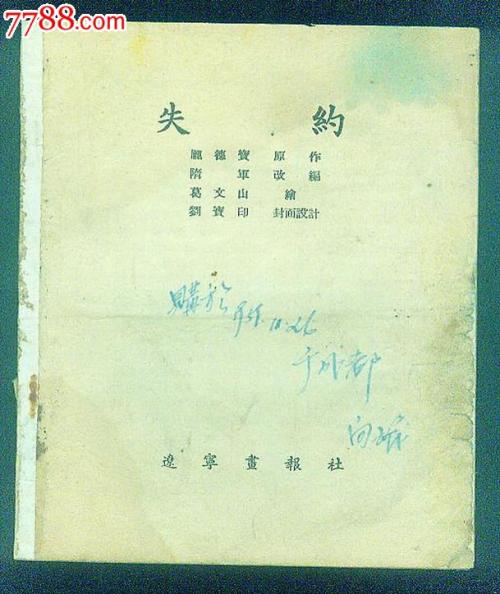 7788.com
失 約
龐德寶 原作
隋 軍 改編
葛文山 繪
劉寶印 封面設計
購於
于成都
遼寧畫報社